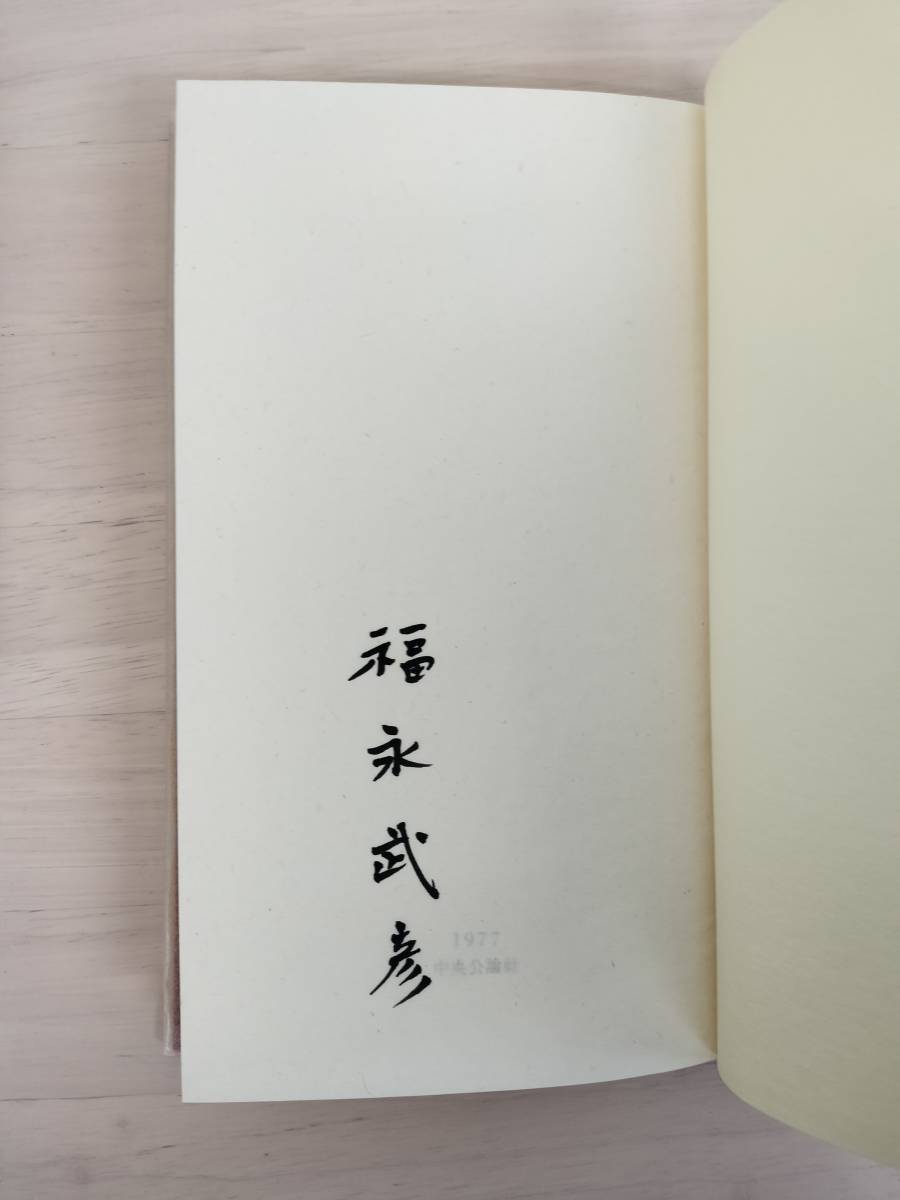 福永武彦
1977
中央公論社